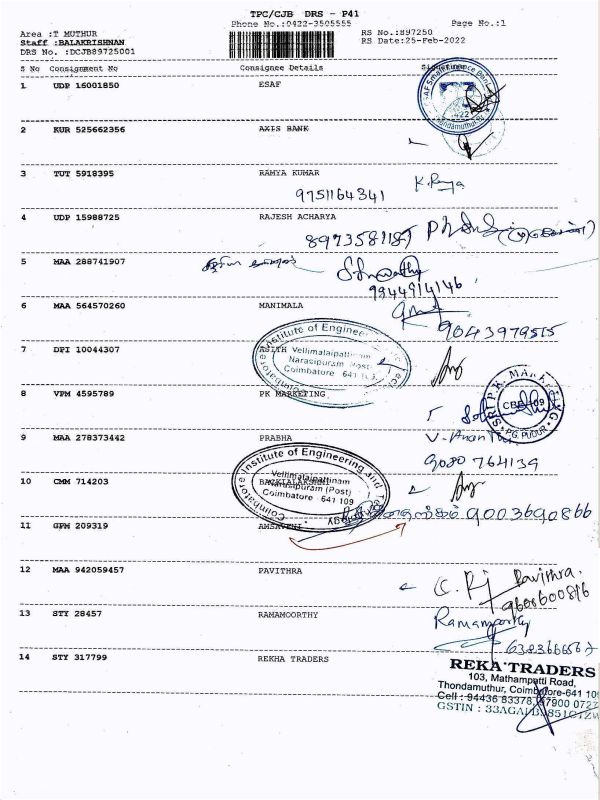 TPC/CJB DRS - P41
Phone No.:0422-3505555
Page No.:1
Area :T MUTHUR
RS No.:897250
Staff :BALAKRISHNAN
RS Date:25-Feb-2022
DRS No. :DCJB89725001
S No Consignment No Consignee Details
1 UDP 16001850 ESAF
2 KUR 525662356 AXIS BANK
3 TUT 5918395 RAMYA KUMAR
9751164341 K.Ramya
4 UDP 15988725 RAJESH ACHARYA
5 MAA 288741907
9344914146
6 MAA 564570260 MANIMALA
9043979515
Coimbatore Institute of Engineering
7 DPI 10044307
Vellimalaipattinam
Narasipuram (Post)
Coimbatore 641 109
8 VPM 4595789 PK MARKETING
SRI P.K. MARKETING
CBE-109
PG PUDUR
9 MAA 278373442 PRABHA
9080764139
Coimbatore Institute of Engineering and Technology
10 CMM 714203
Vellimalaipattinam
Narasipuram (Post)
Coimbatore - 641 109
11 GPM 209319 AMSAVENI
9003690866
12 MAA 942059457 PAVITHRA
Pavithra.
13 STY 28457 RAMAMOORTHY
Ramamoorthy
14 STY 317799 REKHA TRADERS
REKA TRADERS
103, Mathampatti Road,
Thondamuthur, Coimbatore-641 109
Cell : 94436 83378,
GSTIN :